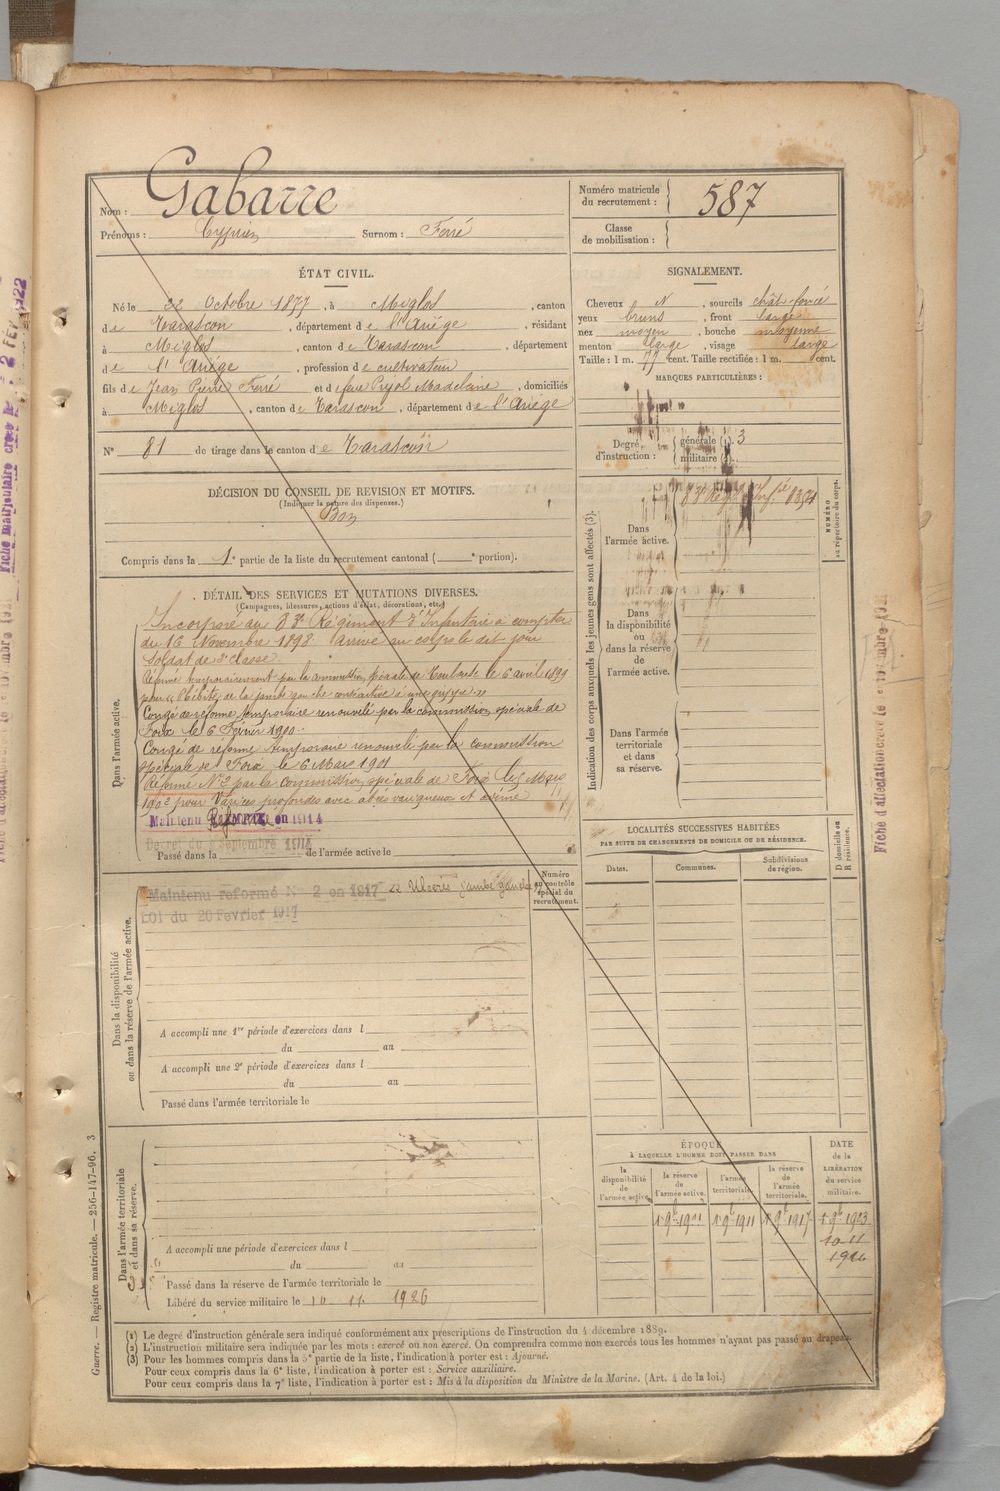 Nom : Gabarre
Prénoms : Cyprien Surnom : Ferré
Numéro matricule du recrutement : 587
Classe de mobilisation :
ÉTAT CIVIL.
Né le 22 Octobre 1877, à Miglos, canton
de Tarascon, département de l'Ariège, résidant
à Miglos, canton de Tarascon, département
de l'Ariége, profession de cultivateur
fils de Jean Pierre Ferré et de feue Pujol Madeleine, domiciliés
à Miglos, canton de Tarascon, département de l'Ariège
N° 81 de tirage dans le canton de Tarascon
DÉCISION DU CONSEIL DE REVISION ET MOTIFS.
(Indiquer la nature des dispenses.)
Bon
Compris dans la 1e partie de la liste du recrutement cantonal ( e portion).
SIGNALEMENT.
Cheveux N, sourcils chât. foncé
yeux bruns, front large
nez moyen, bouche moyenne
menton large, visage large
Taille : 1 m. 77 cent. Taille rectifiée : 1 m. cent.
MARQUES PARTICULIÈRES :
Degré d'instruction : générale (1). 3
militaire (2).
DÉTAIL DES SERVICES ET MUTATIONS DIVERSES.
(Campagnes, blessures, actions d'éclat, décorations, etc.)
Dans l'armée active.
Incorporé au 83e Régiment d'Infanterie à compter
du 16 Novembre 1898 arrivé au corps le dit jour
Soldat de 2e classe
Réformé temporairement par la commission spéciale de Toulouse le 6 avril 1899
pour phlébite de la jambe gauche consécutive à une grippe
Congé de réforme temporaire renouvelé par la commission spéciale de
Foix le 6 Février 1900.
Congé de réforme temporaire renouvelé par la commission
spéciale de Foix le 6 Mars 1901
Réformé N° 2 par la commission spéciale de Foix le Mars
1902 pour Varices profondes avec abcès variqueux et œdème
Maintenu Réformé EXEMPTÉ en 1914
Décret du Septembre 1914
Passé dans la de l'armée active le
Indication des corps auxquels les jeunes gens sont affectés (3).
Dans l'armée active.
83e Régt d'Infie
NUMÉRO au répertoire du corps.
Dans la disponibilité ou dans la réserve de l'armée active.
Dans l'armée territoriale et dans sa réserve.
Dans la disponibilité ou dans la réserve de l'armée active.
Maintenu reformé N° 2 en 1917 Ulcères jambe gauche
Loi du 20 Fevrier 1917
Numéro au contrôle spécial du recrutement.
A accompli une 1re période d'exercices dans l
du au
A accompli une 2e période d'exercices dans l
du au
Passé dans l'armée territoriale le
LOCALITÉS SUCCESSIVES HABITÉES
PAR SUITE DE CHANGEMENTS DE DOMICILE OU DE RÉSIDENCE.
Dates. Communes. Subdivisions de région.
D domicile ou R résidence.
Dans l'armée territoriale et dans sa réserve.
A accompli une période d'exercices dans l
du au
Passé dans la réserve de l'armée territoriale le
Libéré du service militaire le 10 11 1926
ÉPOQUE
À LAQUELLE L'HOMME DOIT PASSER DANS
la disponibilité de l'armée active.
la réserve de l'armée active.
l'armée territoriale.
la réserve de l'armée territoriale.
DATE de la LIBÉRATION du service militaire.
1 9b 1901 1 9b 1911 1 9b 1917 1 9b 1923
10 11
1926
(1) Le degré d'instruction générale sera indiqué conformément aux prescriptions de l'instruction du 4 décembre 1889.
(2) L'instruction militaire sera indiquée par les mots : exercé ou non exercé. On comprendra comme non exercés tous les hommes n'ayant pas passé au drapeau.
(3) Pour les hommes compris dans la 5e partie de la liste, l'indication à porter est : Ajourné.
Pour ceux compris dans la 6e liste, l'indication à porter est : Service auxiliaire.
Pour ceux compris dans la 7e liste, l'indication à porter est : Mis à la disposition du Ministre de la Marine. (Art. 4 de la loi.)
Guerre. — Registre matricule. — 256-147-96. 3
Fiche matriculaire créée le 2 FEV 1922
Fiche d'affectation créée le